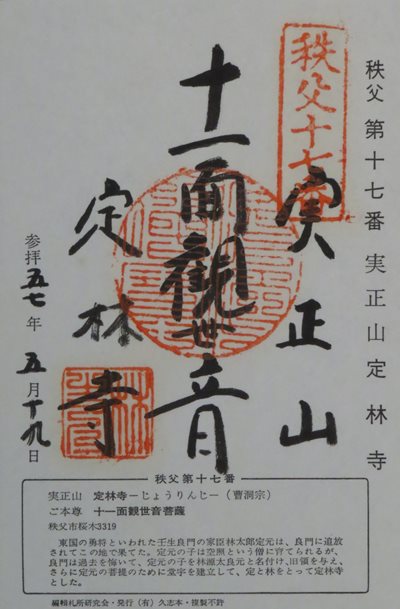 秩父 第十七番 実正山定林寺
秩父十七番
実正山
十一面觀世音
定林寺
参拝五七年五月十九日
秩父第十七番
実正山 定林寺ーじょうりんじー(曹洞宗)
ご本尊 十一面観世音菩薩
秩父市桜木3319
東国の勇将といわれた壬生良門の家臣林太郎定元は、良門に追放
されてこの地で果てた。定元の子は空照という僧に育てられるが、
良門は過去を悔いて、定元の子を林源太良元と名付け、旧領を与え、
さらに定元の菩提のために念宇を建立して、定と林をとって定林寺
とした。
編輯札所研究会・発行(有)久志本・複製不許